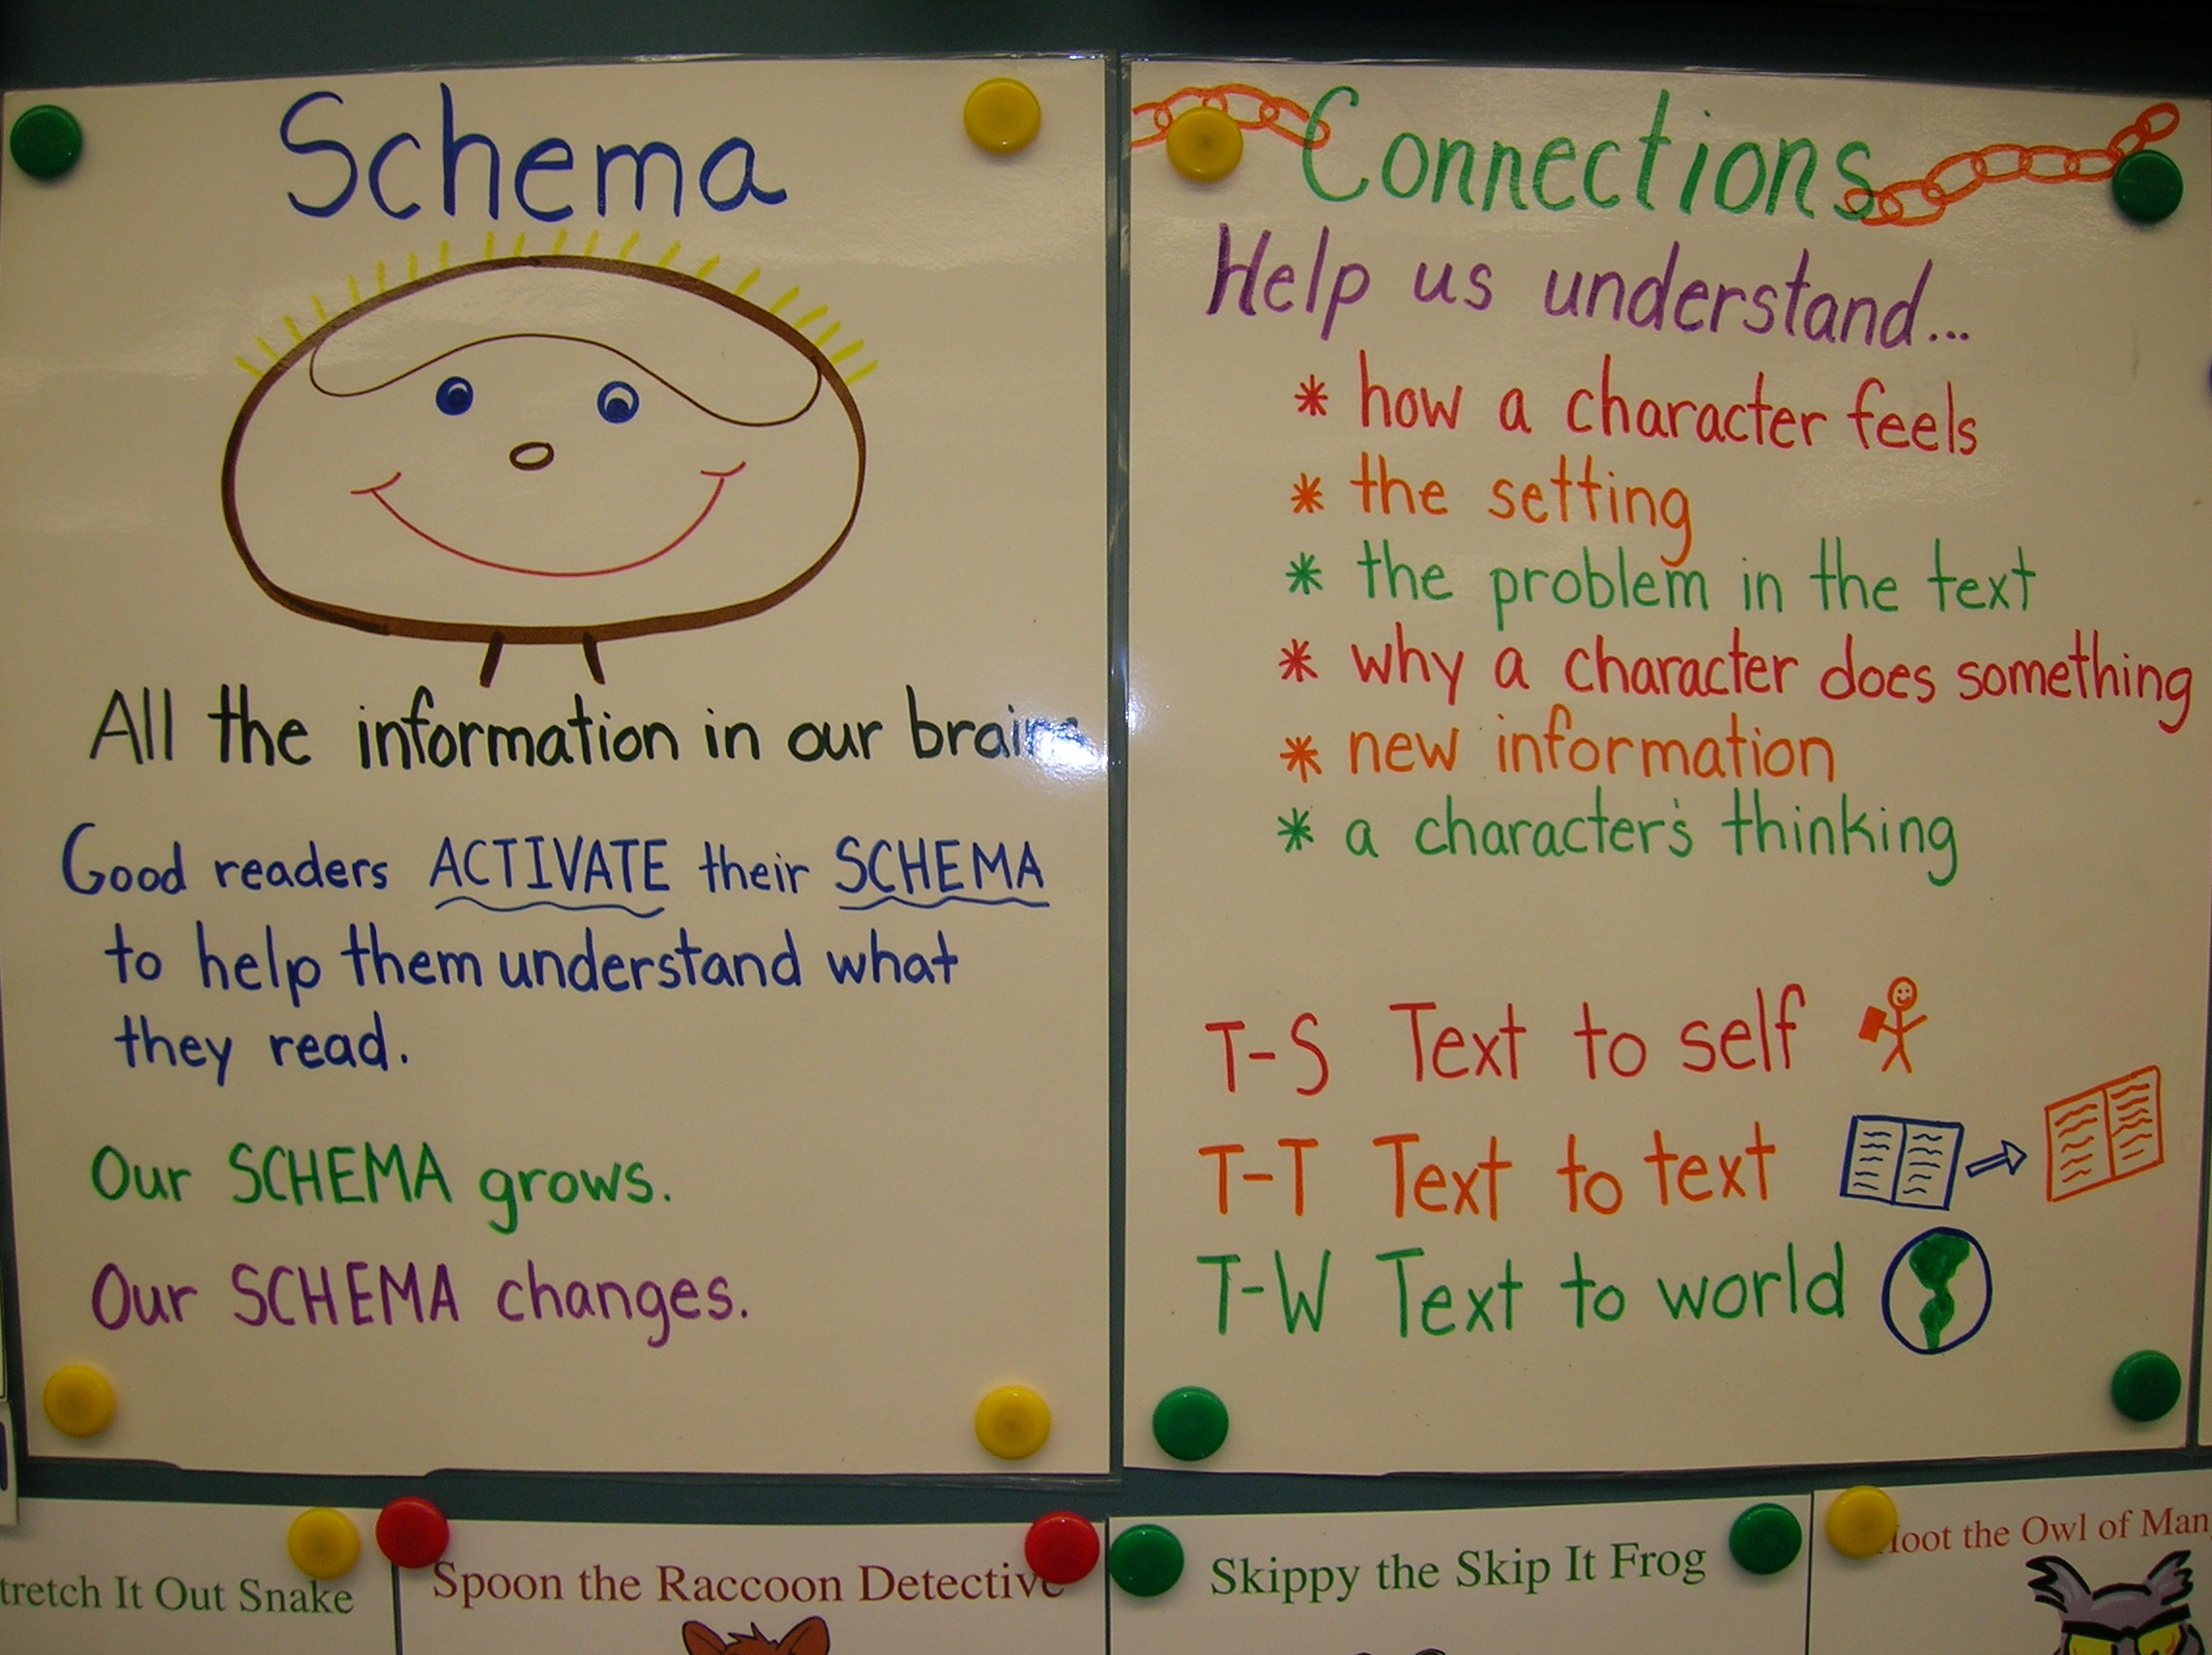 Schema
All the information in our brains
Good readers ACTIVATE their SCHEMA
to help them understand what
they read.
Our SCHEMA grows.
Our SCHEMA changes.
Connections
Help us understand...
* how a character feels
* the setting
* the problem in the text
* why a character does something
* new information
* a character's thinking
T-S Text to self
T-T Text to text
T-W Text to world
tretch It Out Snake
Spoon the Raccoon Detective
Skippy the Skip It Frog
oot the Owl of Man